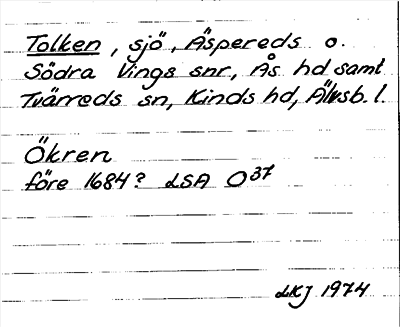 Tolken, sjö, Äspereds o.
Södra Vings snr, Ås hd samt
Tvärreds sn, Kinds hd, Älvsb. l.
Ökren
före 1684? LSA O37
LKJ 1974